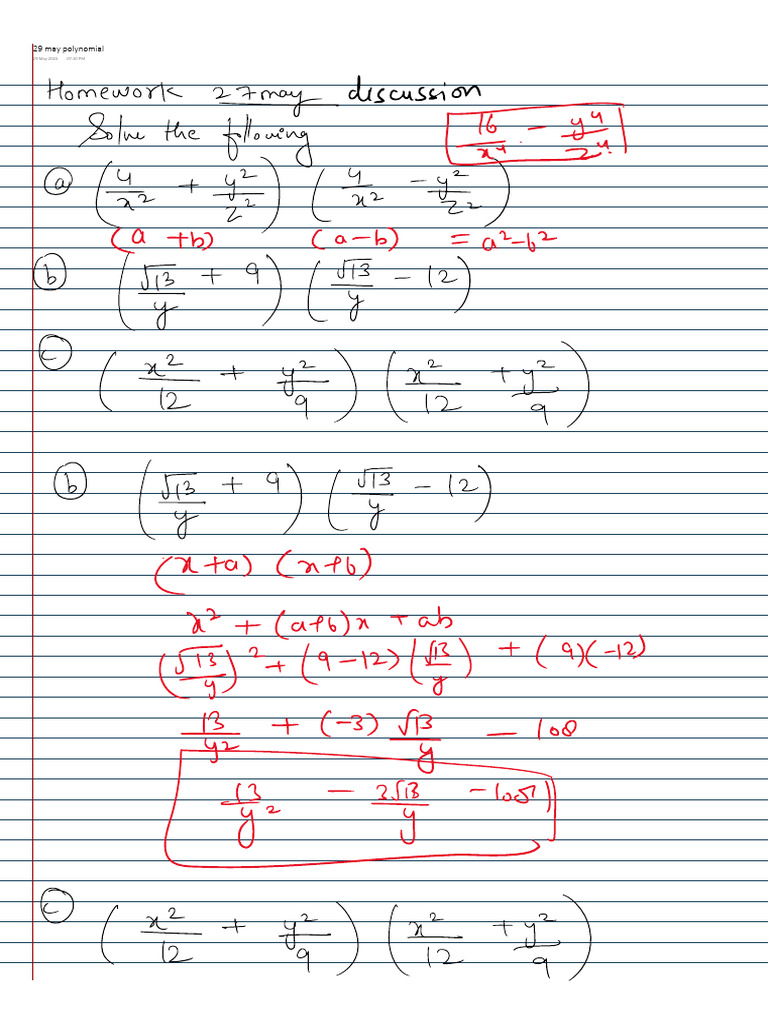 29 may polynomial
29 May 2025 07:30 PM
Homework 27 may discussion
Solve the following
16/x⁴ - y⁴/z⁴
(a) (4/x² + y²/z²) (4/x² - y²/z²)
(a + b) (a - b) = a² - b²
(b) (√13/y + 9) (√13/y - 12)
(c) (x²/12 + y²/9) (x²/12 + y²/9)
(b) (√13/y + 9) (√13/y - 12)
(x + a) (x + b)
x² + (a + b)x + ab
(√13/y)² + (9 - 12) (√13/y) + (9)(-12)
13/y² + (-3) √13/y - 108
13/y² - 3√13/y - 108
(c) (x²/12 + y²/9) (x²/12 + y²/9)